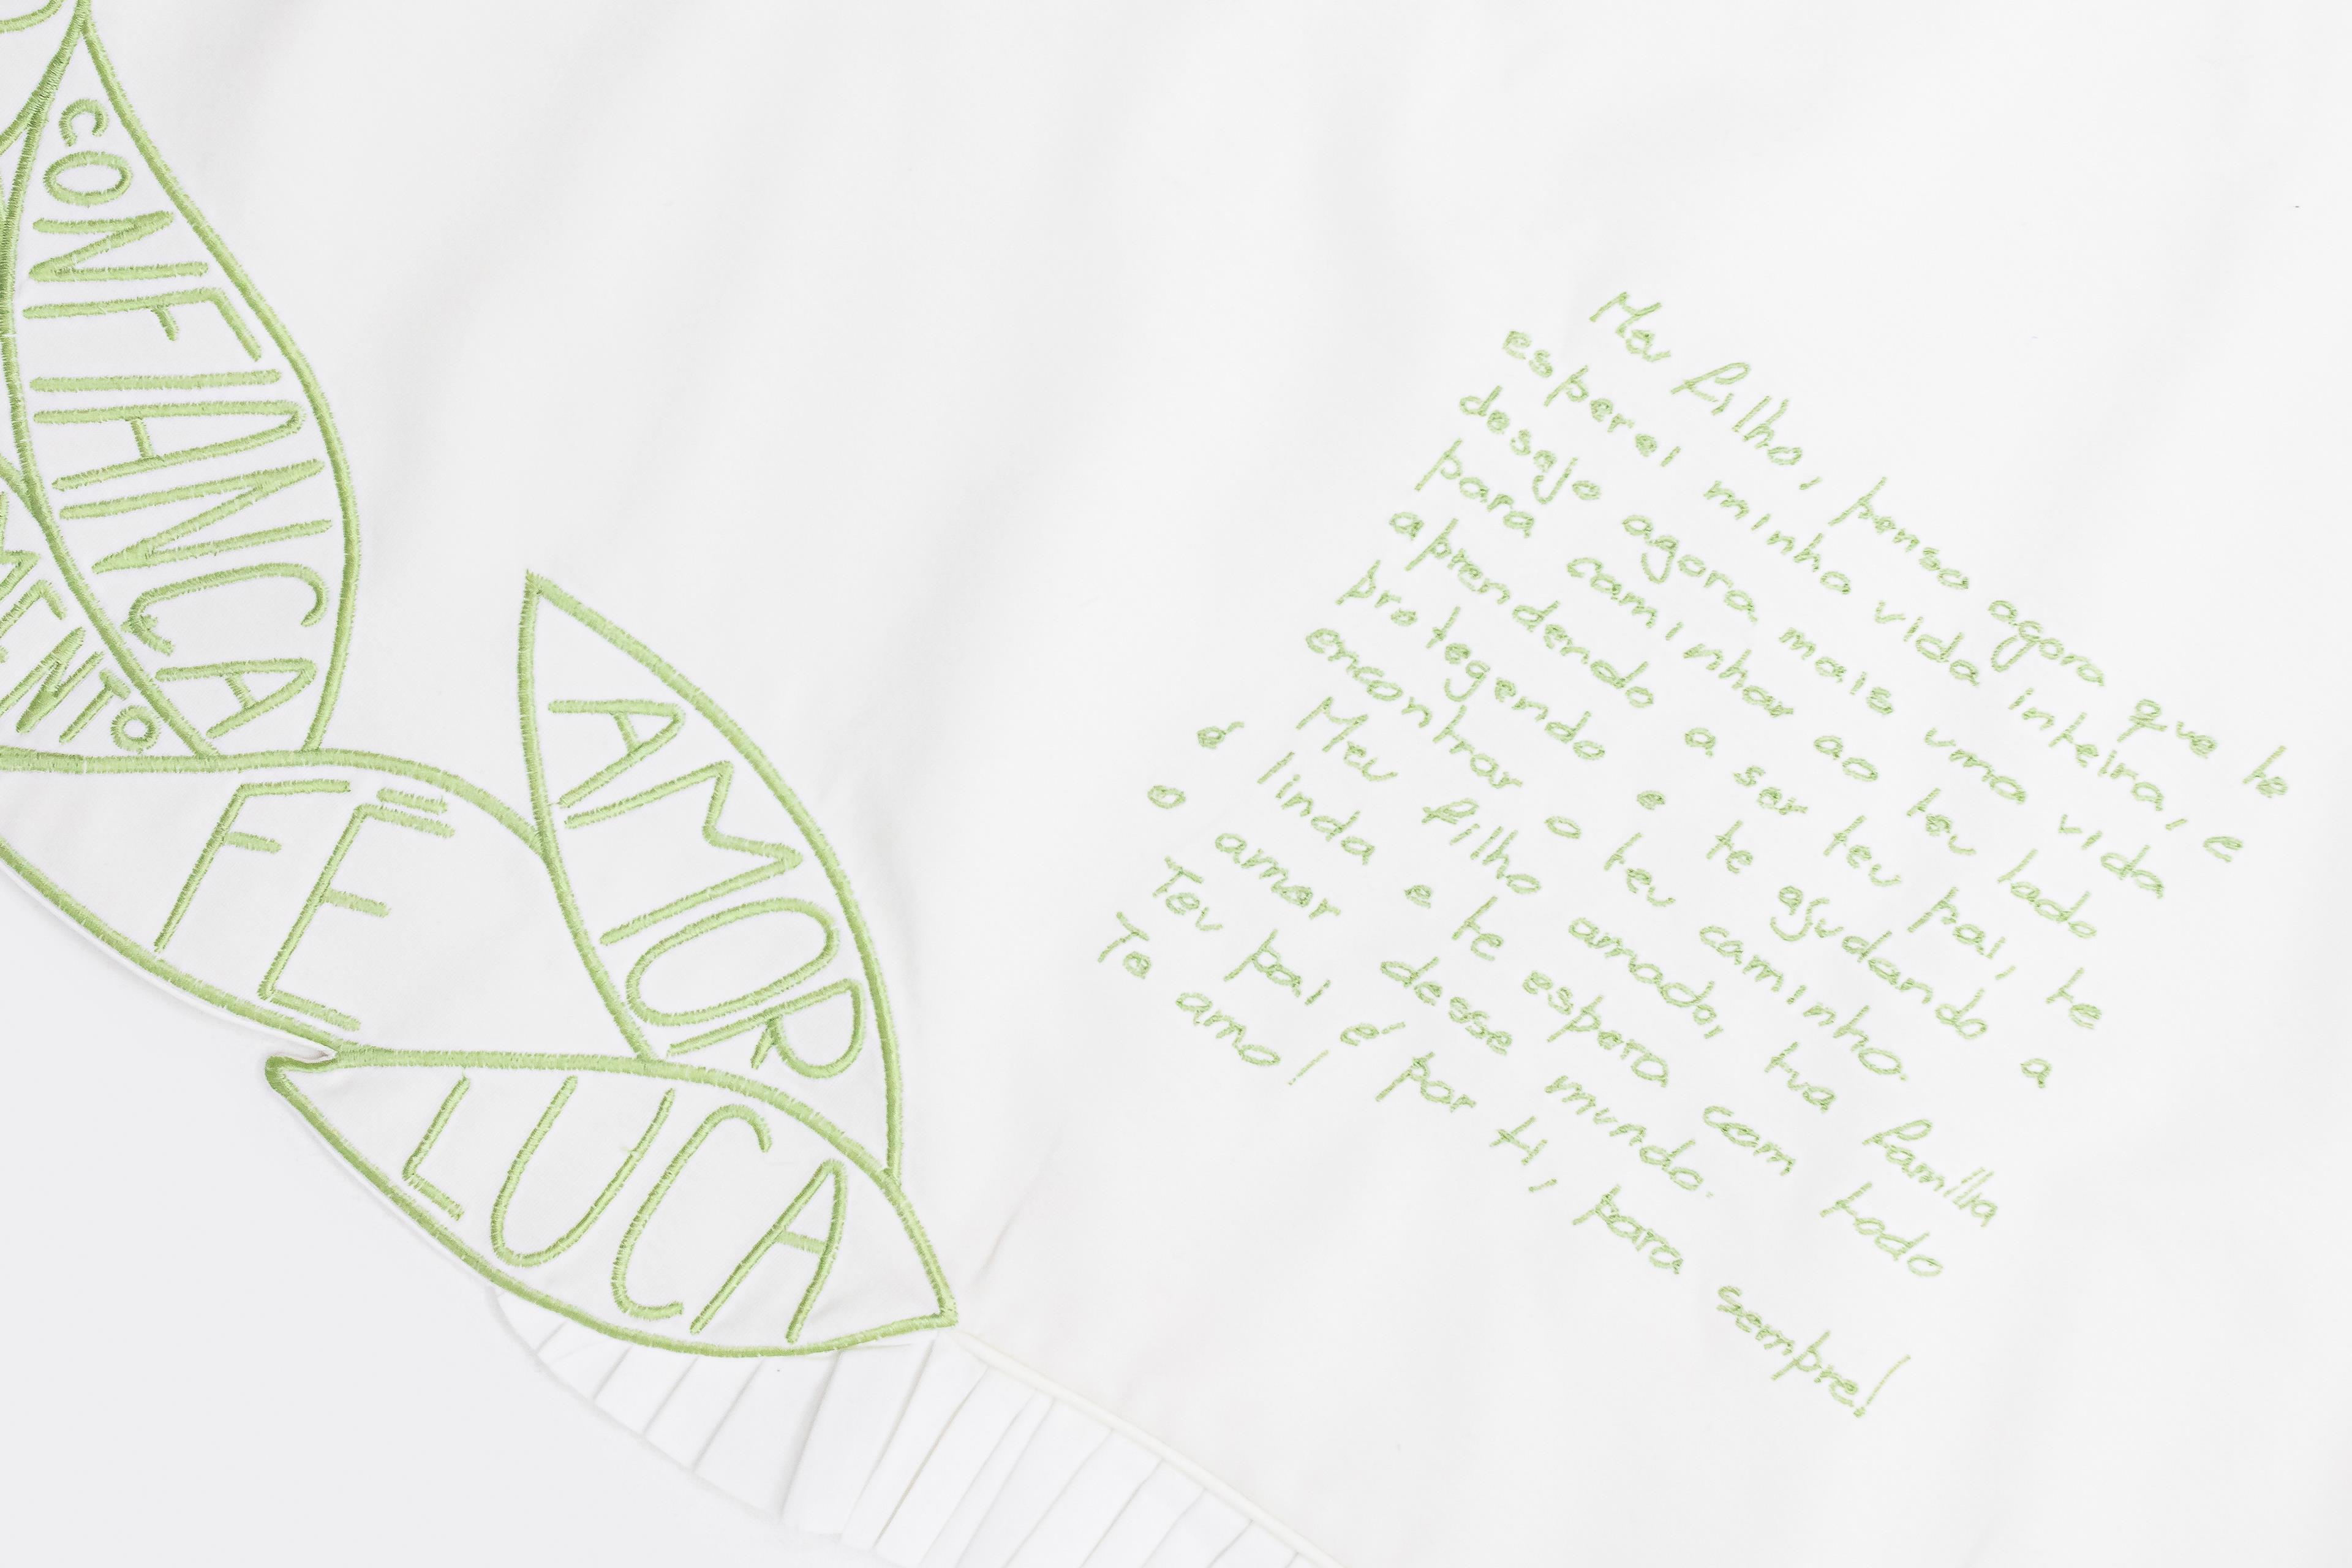 CONFIANÇA
MENTO
FÉ
AMOR
LUCA
Meu filho, penso agora que te
esperei minha vida inteira, e
desejo agora mais uma vida
para caminhar ao teu lado
aprendendo a ser teu pai, te
protegendo e te ajudando a
encontrar o teu caminho.
Meu filho amado, tua família
é linda e te espera com todo
o amor desse mundo.
Teu pai é por ti, para sempre!
Te amo!